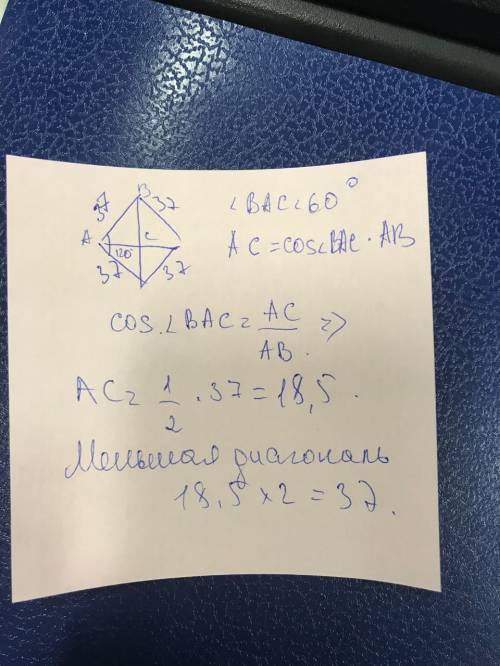 B
37 37
A C
120°
37 37
∠BAC<60°
AC=COS∠BAC·AB
COS.∠BAC = AC/AB. =>
AC = 1/2 · 37 = 18,5.
Меньшая диагональ
18,5 × 2 = 37.